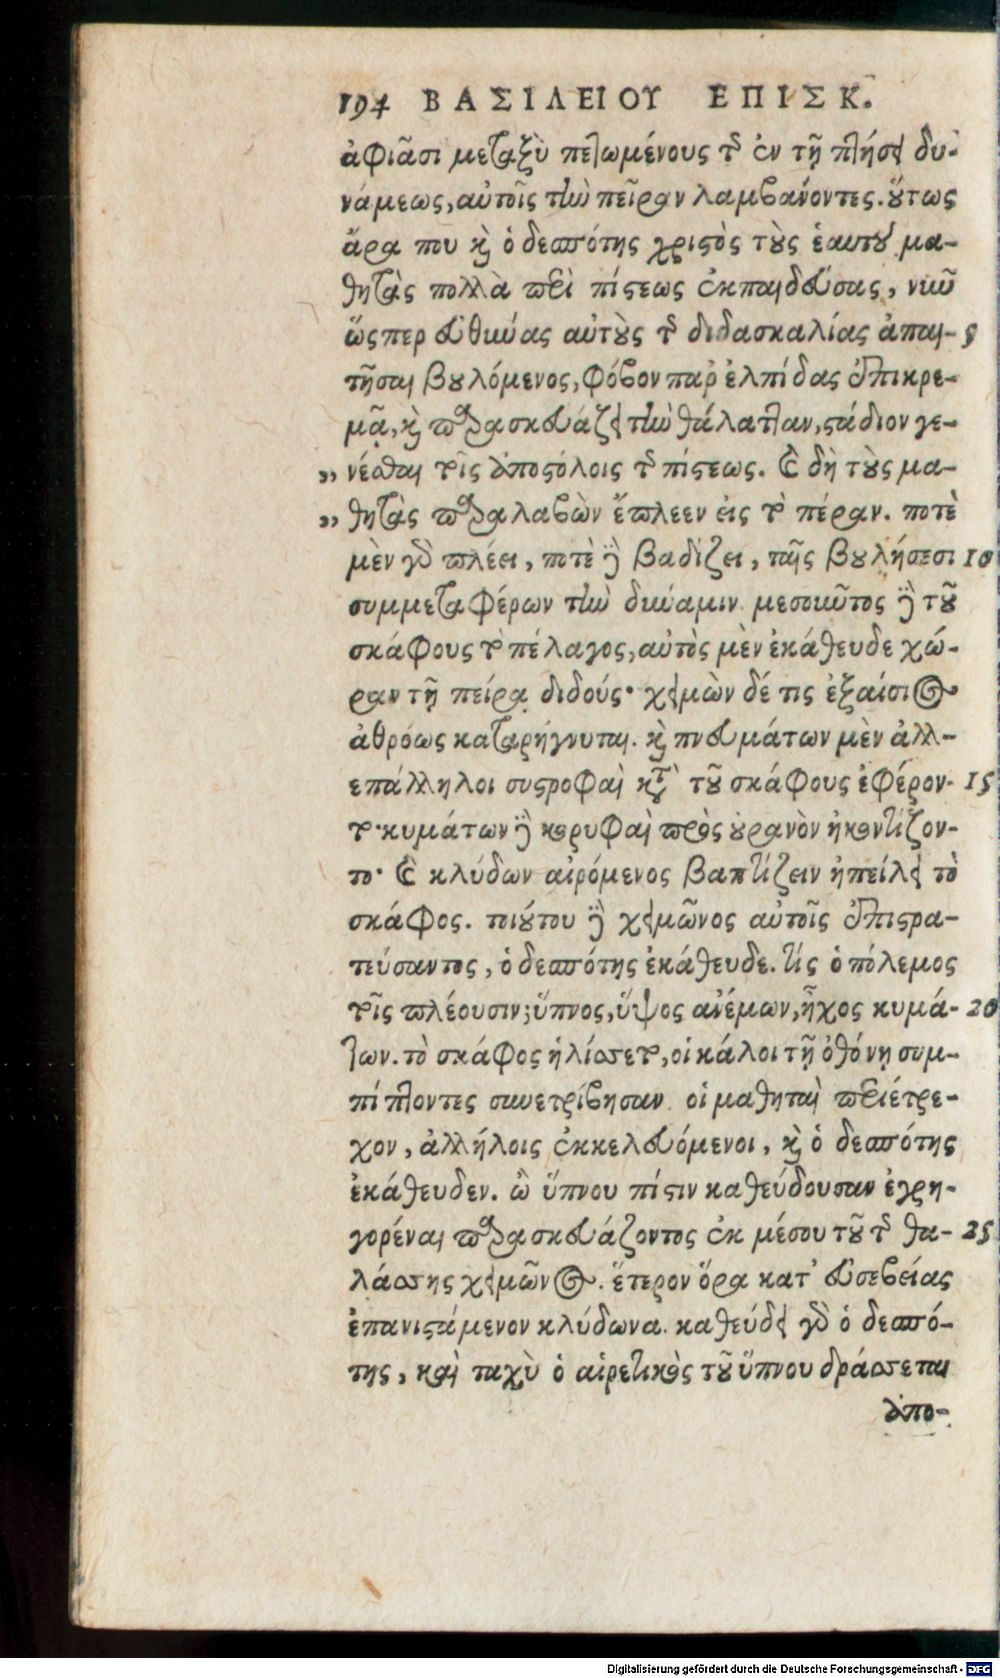 194 ΒΑΣΙΛΕΙΟΥ ΕΠΙΣΚ.
ἀφιᾶσι μεταξὺ πετωμένους τῆς ἐν τῇ πτήσει δυ-
νάμεως, αὐτοῖς τὴν πεῖραν λαμβάνοντες. οὕτως
ἄρα που καὶ ὁ δεσπότης χριστὸς τοὺς ἑαυτοῦ μα-
θητὰς πολλὰ περὶ πίστεως ἐκπαιδεύσας, νῦν
ὥσπερ εὐθύνας αὐτοὺς τῆς διδασκαλίας ἀπαι- 5
τῆσαι βουλόμενος, φόβον παρ' ἐλπίδας ἐπικρε-
μᾷ, καὶ παρασκευάζει τὴν θάλατταν, στάδιον γε-
„ νέσθαι τοῖς ἀποστόλοις τῆς πίστεως. καὶ δὴ τοὺς μα-
„ θητὰς παραλαβὼν ἔπλεεν εἰς τὸ πέραν. ποτὲ
μὲν γὰρ πλέει, ποτὲ δὲ βαδίζει, ταῖς βουλήσεσι 10
συμμεταφέρων τὴν δύναμιν. μεσοιῶτος δὲ τοῦ
σκάφους τὸ πέλαγος, αὐτὸς μὲν ἐκάθευδε χώ-
ραν τῇ πείρᾳ διδούς· χειμὼν δέ τις ἐξαίσιος
ἀθρόως καταρήγνυται. καὶ πνευμάτων μὲν ἀλλ-
επάλληλοι συστροφαὶ κατὰ τοῦ σκάφους ἐφέρον- 15
το· κυμάτων δὲ κορυφαὶ πρὸς οὐρανὸν ἠκοντίζον-
το· καὶ κλύδων αἰρόμενος βαπτίζειν ἠπείλει τὸ
σκάφος. τοιούτου δὲ χειμῶνος αὐτοῖς ἐπιστρα-
τεύσαντος, ὁ δεσπότης ἐκάθευδε. τίς ὁ πόλεμος
τοῖς πλέουσιν; ὕπνος, ὕψος ἀνέμων, ἦχος κυμά- 20
των. τὸ σκάφος ἡλίσσετο, οἱ κάλοι τῇ ὀθόνῃ συμ-
πίπτοντες συνετρίβησαν. οἱ μαθηταὶ περιέτρε-
χον, ἀλλήλοις ἐκκελευόμενοι, καὶ ὁ δεσπότης
ἐκάθευδεν. ὢ ὕπνου πίστιν καθεύδουσαν ἐγρη-
γορέναι παρασκευάζοντος ἐκ μέσου τοῦ τῆς θα- 25
λάσσης χειμῶνος. ἕτερον ὅρα κατ' εὐσεβείας
ἐπανιστάμενον κλύδωνα. καθεύδει γὰρ ὁ δεσπό-
της, καὶ ταχὺ ὁ αἱρετικὸς τοῦ ὕπνου δράσσεται
ἀπο-
Digitalisierung gefördert durch die Deutsche Forschungsgemeinschaft - DFG